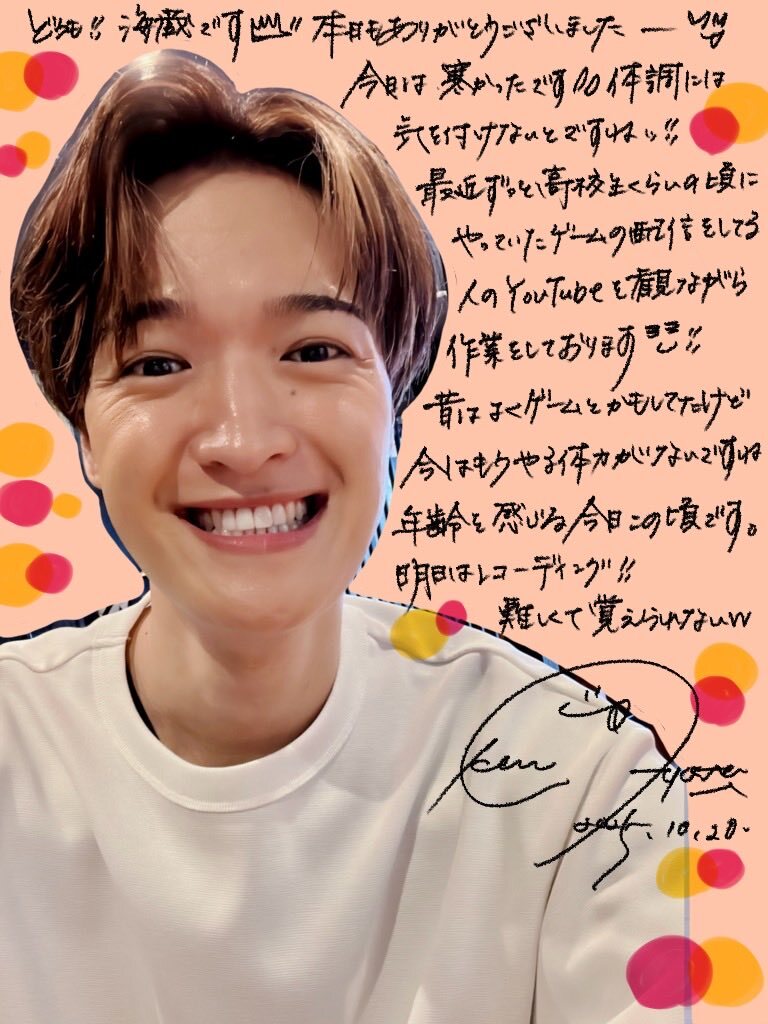 どうも!! 海蔵です!! 本日もありがとうございましたー
今日は寒かったです 体調には
気を付けないとですねッ!!
最近ずっと、高校生くらいの頃に
やっていたゲームの配信をしてる
人のYouTubeを観ながら
作業をしております!!
昔はよくゲームとかもしてたけど
今はもうやる体力がけないですね
年齢を感じる今日この頃です。
明日はレコーディング!!
難しくて覚えられないw
ken
2025.10.20.